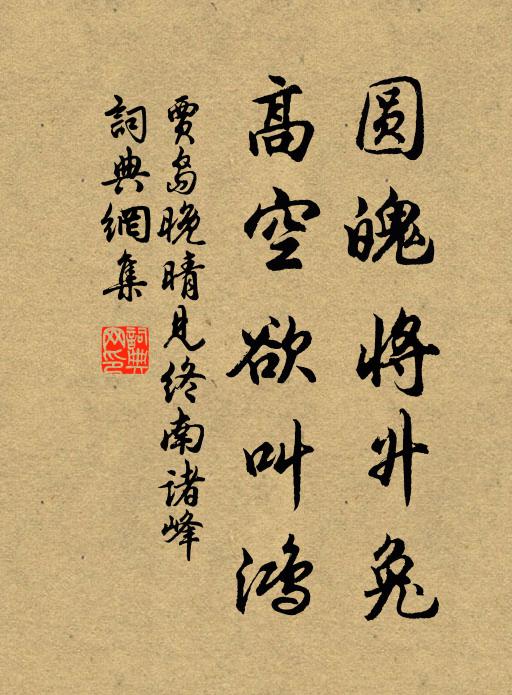 圆魄将升兔
高空欲叫鸿
贾岛晚晴见终南诸峰
詞典網集
詞典网印